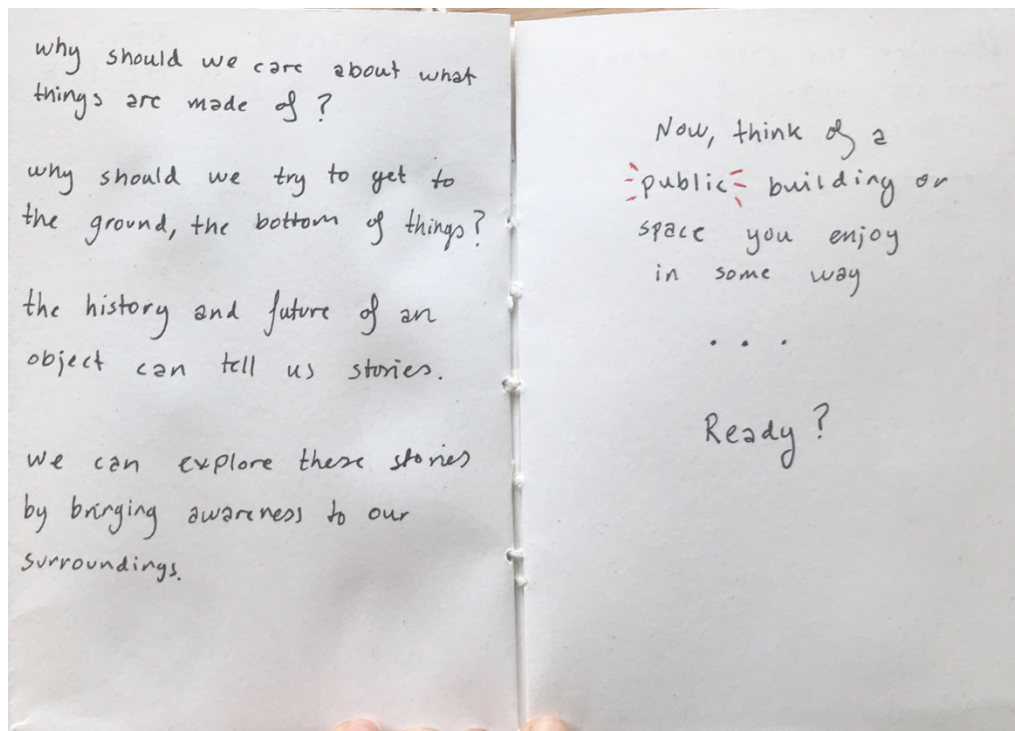 why should we care about what
things are made of?
why should we try to get to
the ground, the bottom of things?
the history and future of an
object can tell us stories.
we can explore these stories
by bringing awareness to our
surroundings.
Now, think of a
public building or
space you enjoy
in some way
...
Ready?